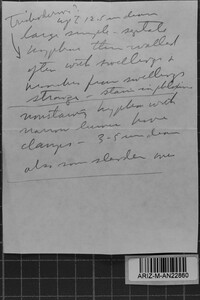 Trichoderma?
up to 12.5 um diam
large simple-septate
hyphae thin walled
often with swellings &
branches from swellings
strange - stain in phlox.
nonstaining hyphae with
narrow lumen have
clamps - 3-5 um diam
also some slender ones
ARIZ-M-AN22860